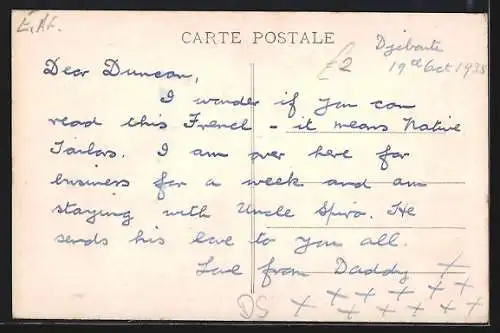 E.Af.
CARTE POSTALE
£2
Djibouti
19th Oct 1938
Dear Duncan,
I wonder if you can
read this French - it means Native
Tailors. I am over here for
business for a week and am
staying with Uncle Spiro. He
sends his love to you all.
Love from Daddy X
X X X X X
X X X X X X
DS